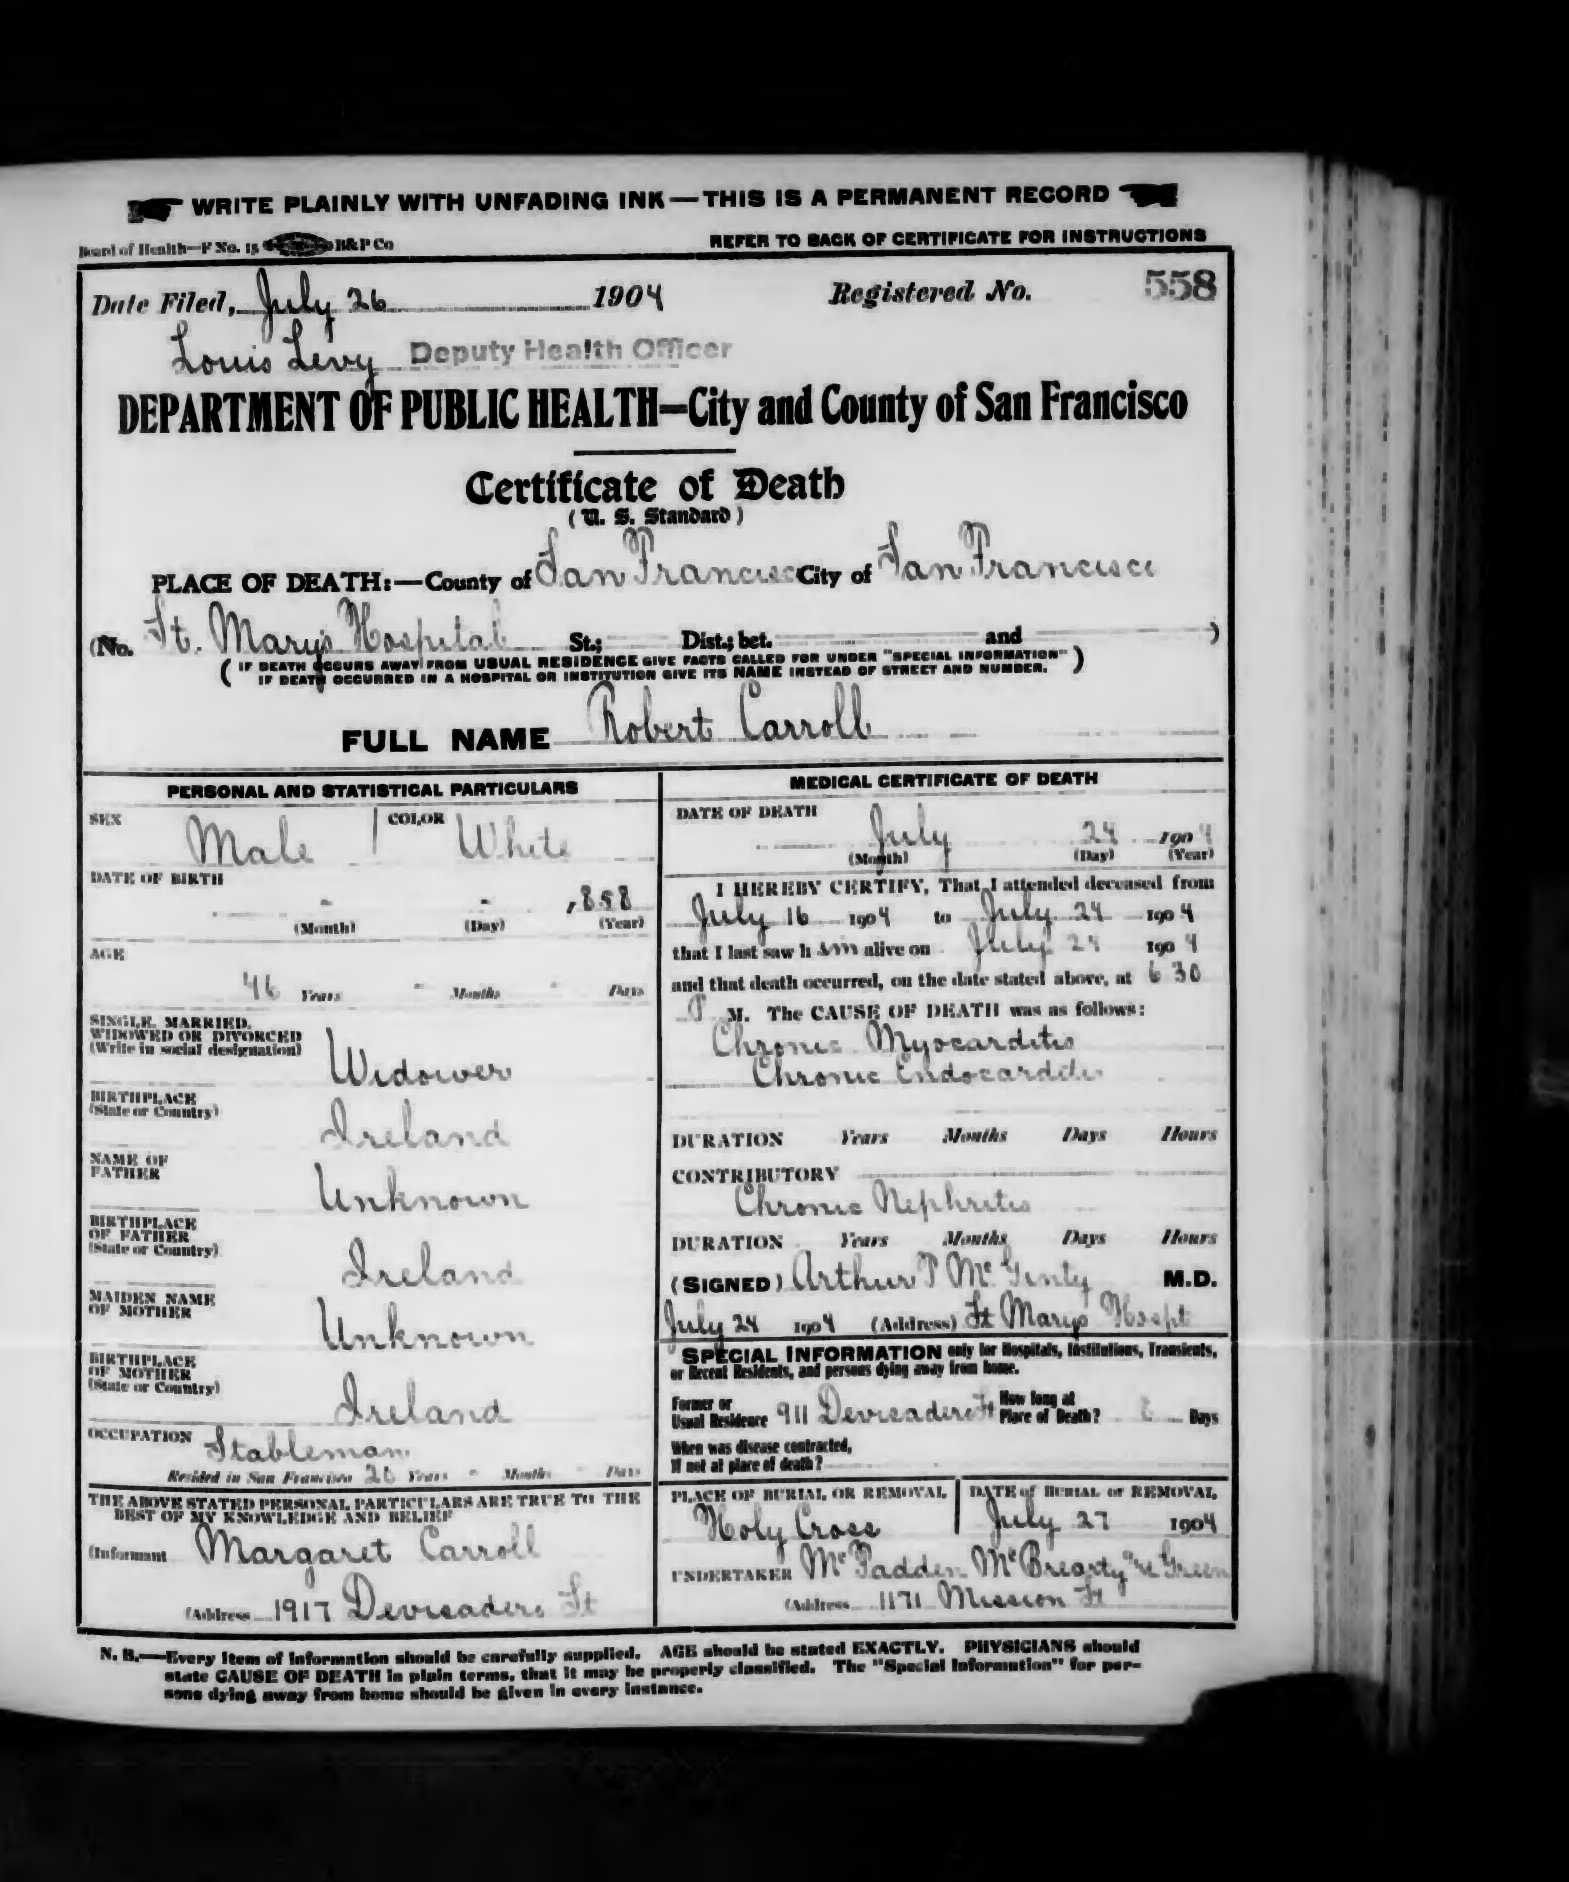 WRITE PLAINLY WITH UNFADING INK—THIS IS A PERMANENT RECORD
Board of Health—F No. 15 B&P Co REFER TO BACK OF CERTIFICATE FOR INSTRUCTIONS
Date Filed, July 26 1904 Registered No. 558
Louis Levy Deputy Health Officer
DEPARTMENT OF PUBLIC HEALTH—City and County of San Francisco
Certificate of Death
(U. S. Standard)
PLACE OF DEATH:—County of San Francisco City of San Francisco
(No. St. Mary's Hospital St.; Dist.; bet. and )
( IF DEATH OCCURS AWAY FROM USUAL RESIDENCE GIVE FACTS CALLED FOR UNDER "SPECIAL INFORMATION" )
IF DEATH OCCURRED IN A HOSPITAL OR INSTITUTION GIVE ITS NAME INSTEAD OF STREET AND NUMBER.
FULL NAME Robert Carroll
PERSONAL AND STATISTICAL PARTICULARS
SEX Male COLOR White
DATE OF BIRTH
- - 1858
(Month) (Day) (Year)
AGE
46 Years - Months - Days
SINGLE, MARRIED,
WIDOWED OR DIVORCED
(Write in social designation)
Widower
BIRTHPLACE
(State or Country)
Ireland
NAME OF
FATHER
Unknown
BIRTHPLACE
OF FATHER
(State or Country)
Ireland
MAIDEN NAME
OF MOTHER
Unknown
BIRTHPLACE
OF MOTHER
(State or Country)
Ireland
OCCUPATION Stableman
Resided in San Francisco Years - Months - Days
THE ABOVE STATED PERSONAL PARTICULARS ARE TRUE TO THE
BEST OF MY KNOWLEDGE AND BELIEF
(Informant Margaret Carroll
(Address 1917 Devisadero St
MEDICAL CERTIFICATE OF DEATH
DATE OF DEATH
July 24 1904
(Month) (Day) (Year)
I HEREBY CERTIFY, That I attended deceased from
July 16 1904 to July 24 1904
that I last saw him alive on July 24 1904
and that death occurred, on the date stated above, at 6 30
P M. The CAUSE OF DEATH was as follows:
Chronic Myocarditis
Chronic Endocarditis
DURATION Years Months Days Hours
CONTRIBUTORY
Chronic Nephritis
DURATION Years Months Days Hours
(SIGNED) Arthur P McGinty M.D.
July 24 1904 (Address) St Marys Hospt
SPECIAL INFORMATION only for Hospitals, Institutions, Transients,
or Recent Residents, and persons dying away from home.
Former or
Usual Residence 911 Devisadero St How long at
Place of Death? Days
When was disease contracted,
If not at place of death?
PLACE OF BURIAL OR REMOVAL DATE of BURIAL or REMOVAL
Holy Cross July 27 1904
UNDERTAKER McFadden McBrearty & Green
(Address 1171 Mission St
N. B.—Every item of information should be carefully supplied. AGE should be stated EXACTLY. PHYSICIANS should
state CAUSE OF DEATH in plain terms, that it may be properly classified. The "Special Information" for per-
sons dying away from home should be given in every instance.